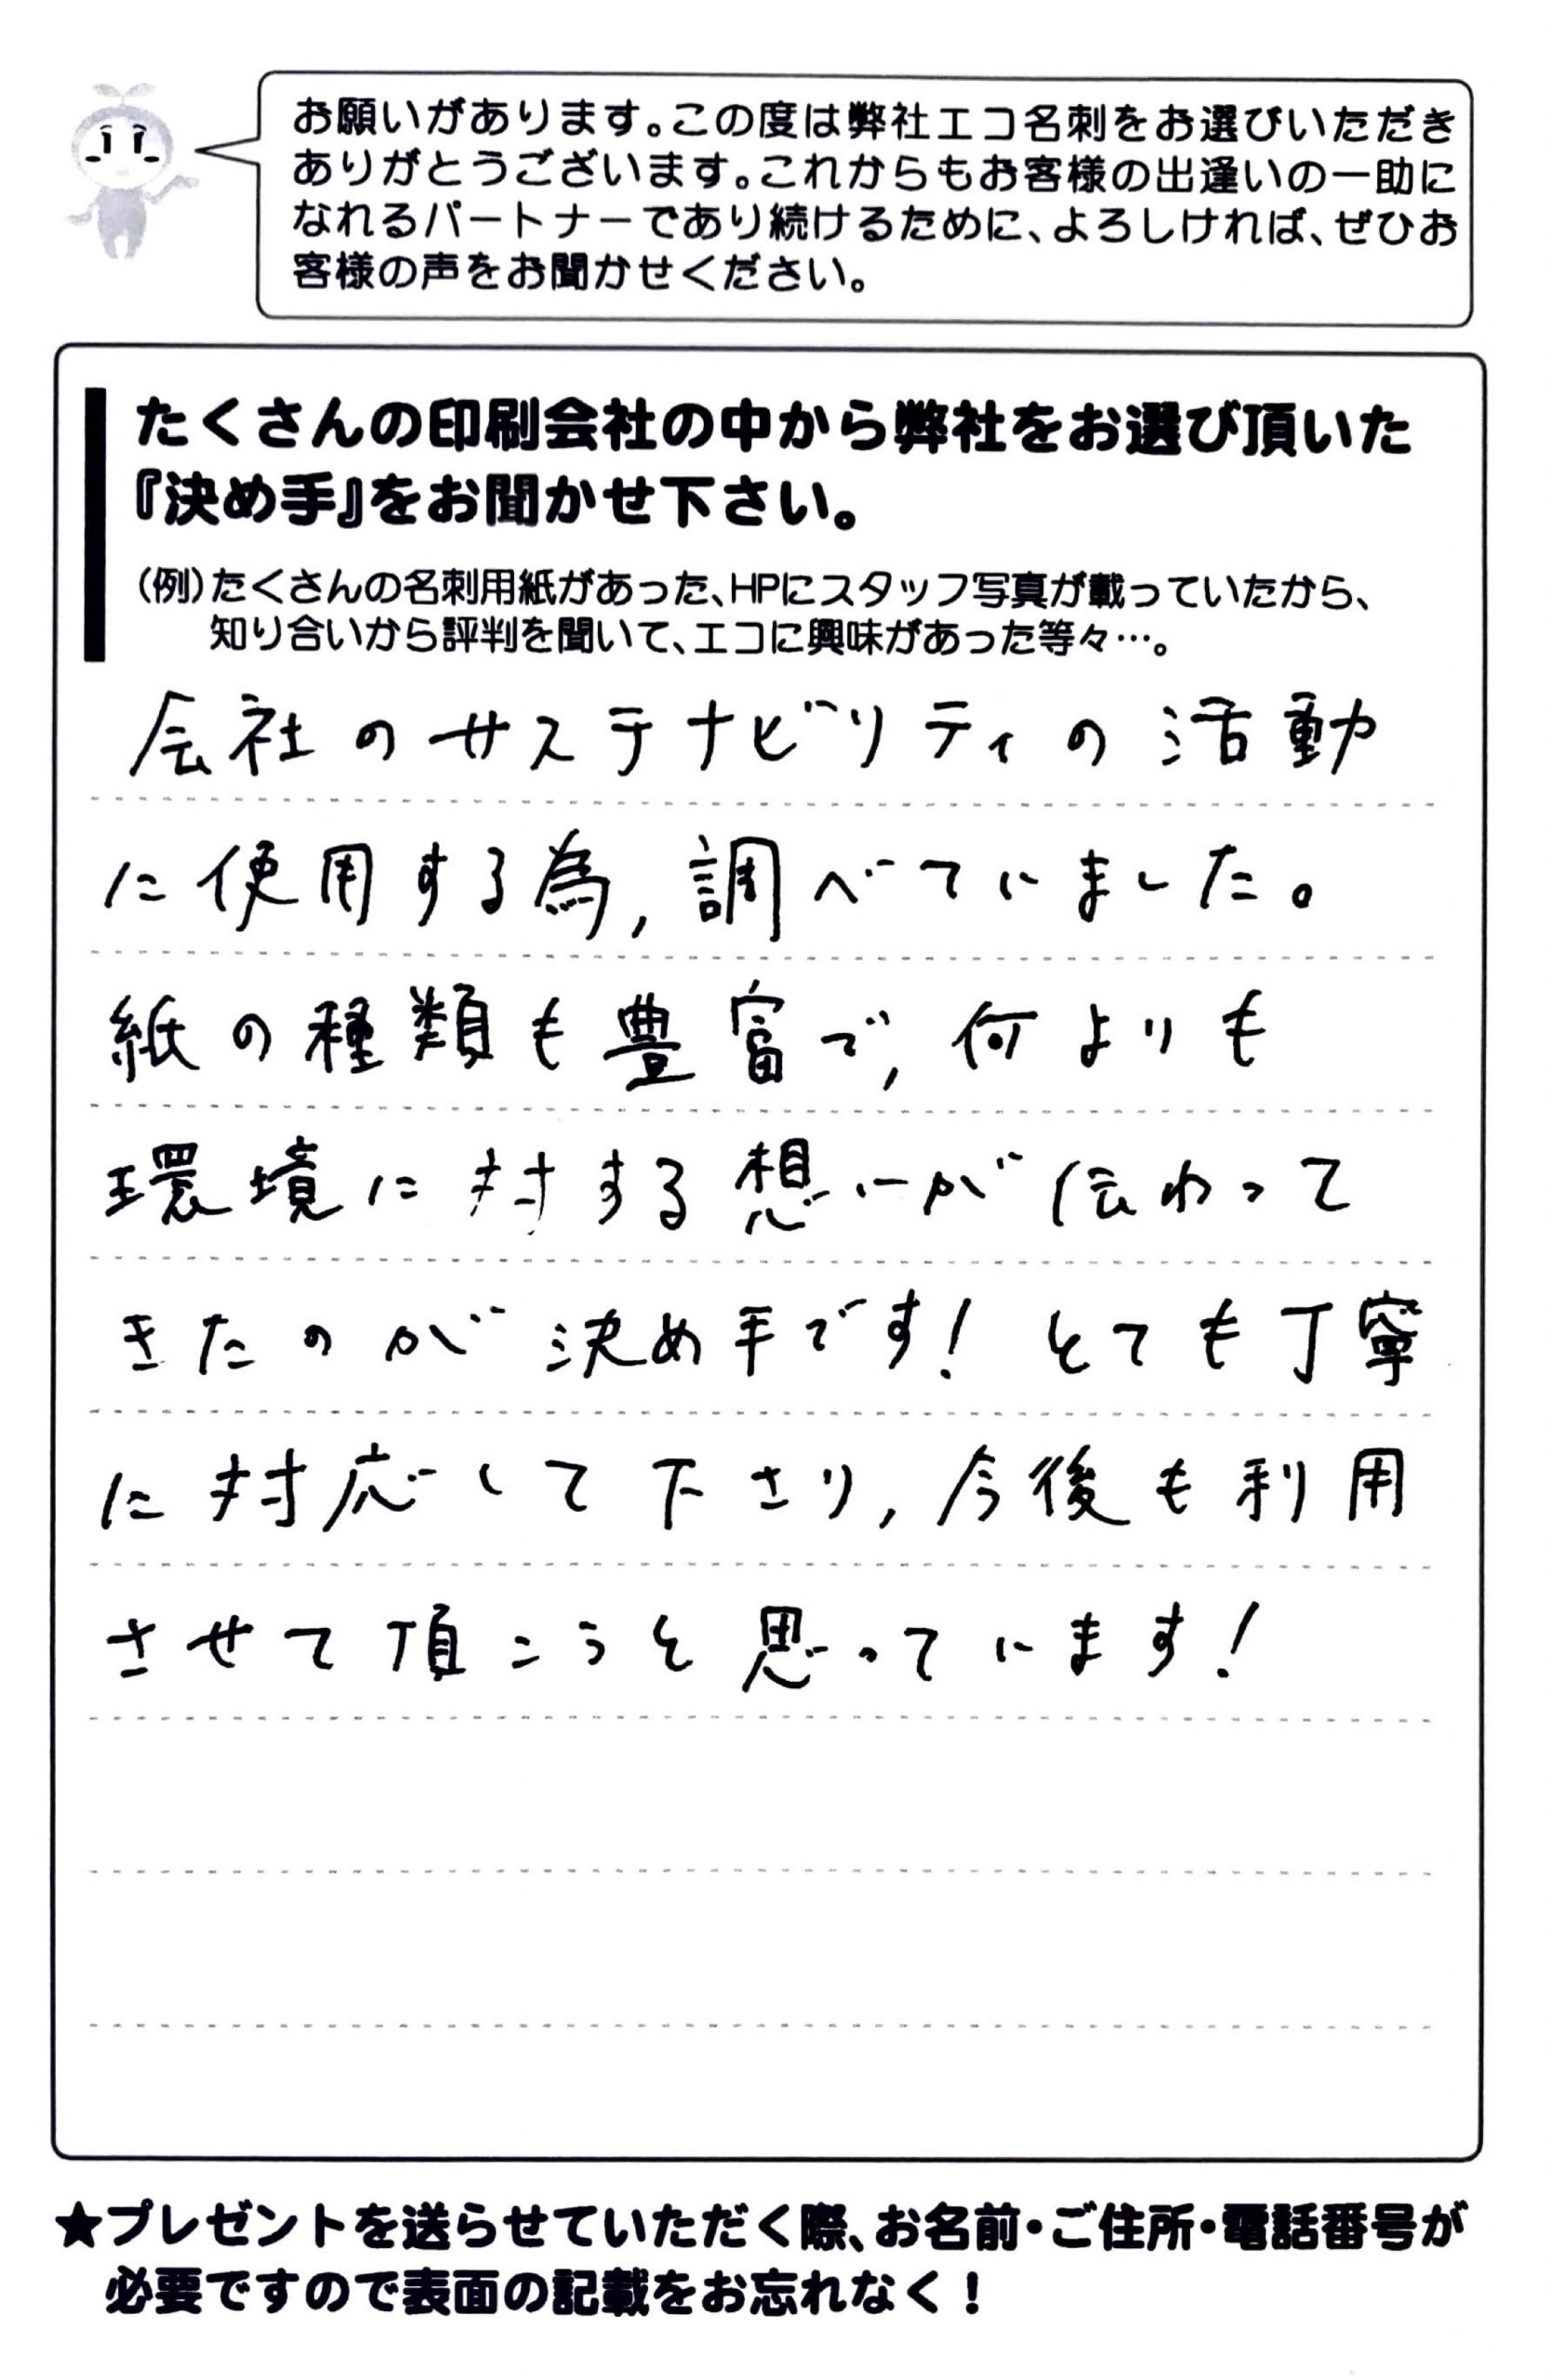 お願いがあります。この度は弊社エコ名刺をお選びいただき
ありがとうございます。これからもお客様の出逢いの一助に
なれるパートナーであり続けるために、よろしければ、ぜひお
客様の声をお聞かせください。
たくさんの印刷会社の中から弊社をお選び頂いた
『決め手』をお聞かせ下さい。
(例)たくさんの名刺用紙があった、HPにスタッフ写真が載っていたから、
知り合いから評判を聞いて、エコに興味があった等々…。
会社のサステナビリティの活動
に使用する為,調べていました。
紙の種類も豊富で,何よりも
環境に対する想いが伝わって
きたのが決め手です!とても丁寧
に対応して下さり,今後も利用
させて頂こうと思っています!
★プレゼントを送らせていただく際、お名前・ご住所・電話番号が
必要ですので表面の記載をお忘れなく!